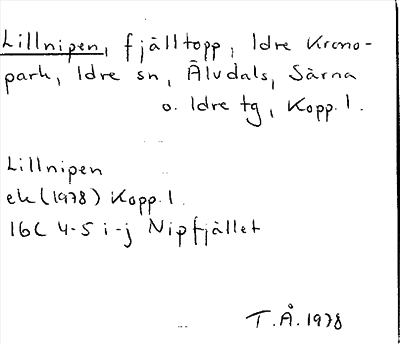 Lillnipen, fjälltopp, Idre Krono-
park, Idre sn, Älvdals, Särna
o. Idre tg, Kopp. l.
Lillnipen
ek (1978) Kopp. l.
16C 4-5 i-j Nipfjället
T.Å. 1978